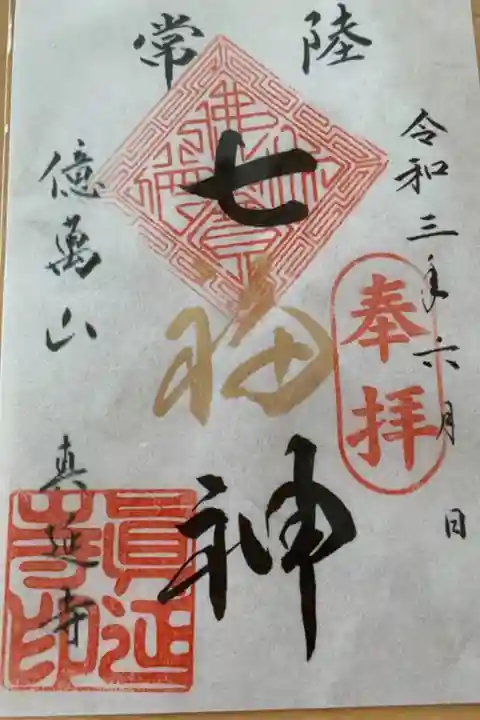 常陸
令和三年六月 日
奉拝
七福神
億萬山 真延寺
眞延寺印